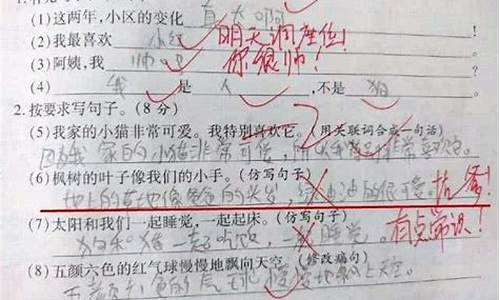 (1)这两年,小区的变化 真大啊
(2)我最喜欢 小红 明天调座位!
(3)阿姨,我 帅吧 你很帅!
(4) 我 是 人 ,不是 狗
2.按要求写句子。(8 分)
(5)我家的小猫非常可爱。我特别喜欢它。(用关联词合成一句话)
因为我家的小猫非常可爱,所以我 非常喜欢它。
(6)枫树的叶子像我们的小手。(仿写句子)
地上的草地像爸爸的头发, 绿油油的很可爱。
(7)太阳和我们一起睡觉,一起起床。(仿写句子)
狗和猪一起吃饭,一起睡觉。 有点常识!
(8)五颜六色的红气球慢慢地飘向天空。(修改病句)
五颜六色的气球慢慢地飘上天空。